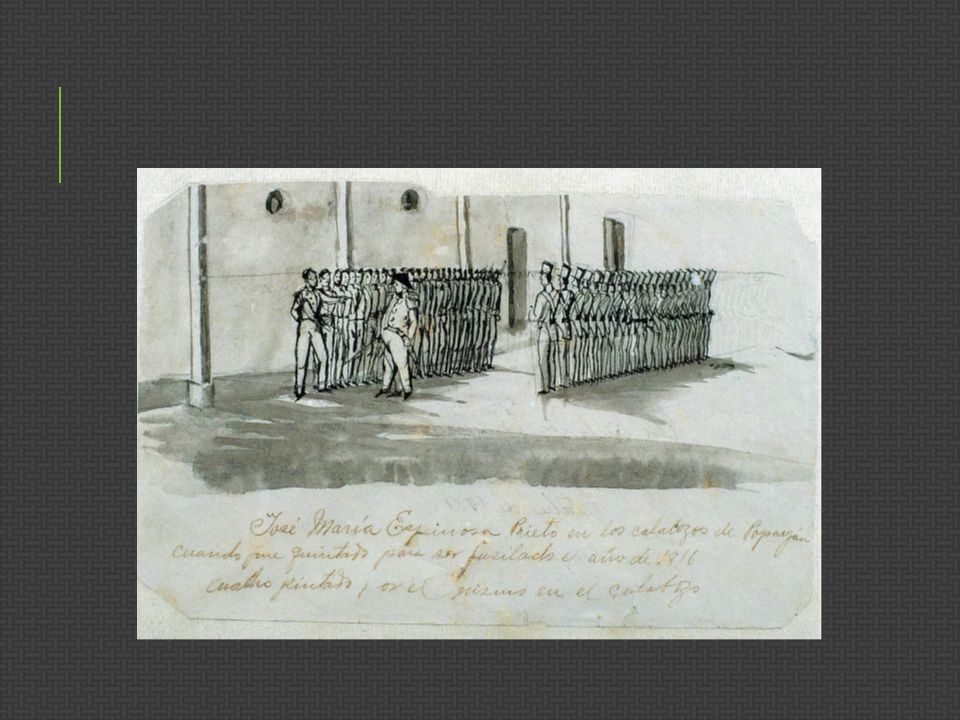 José María Espinosa Prieto en los calabozos de Popayán
cuando fue quintado para ser fusilado el año de 1816
cuadro pintado por el mismo en el calabozo